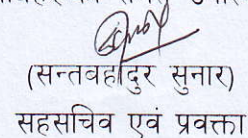 (सन्तबहादुर सुनार)
सहसचिव एवं प्रवक्ता